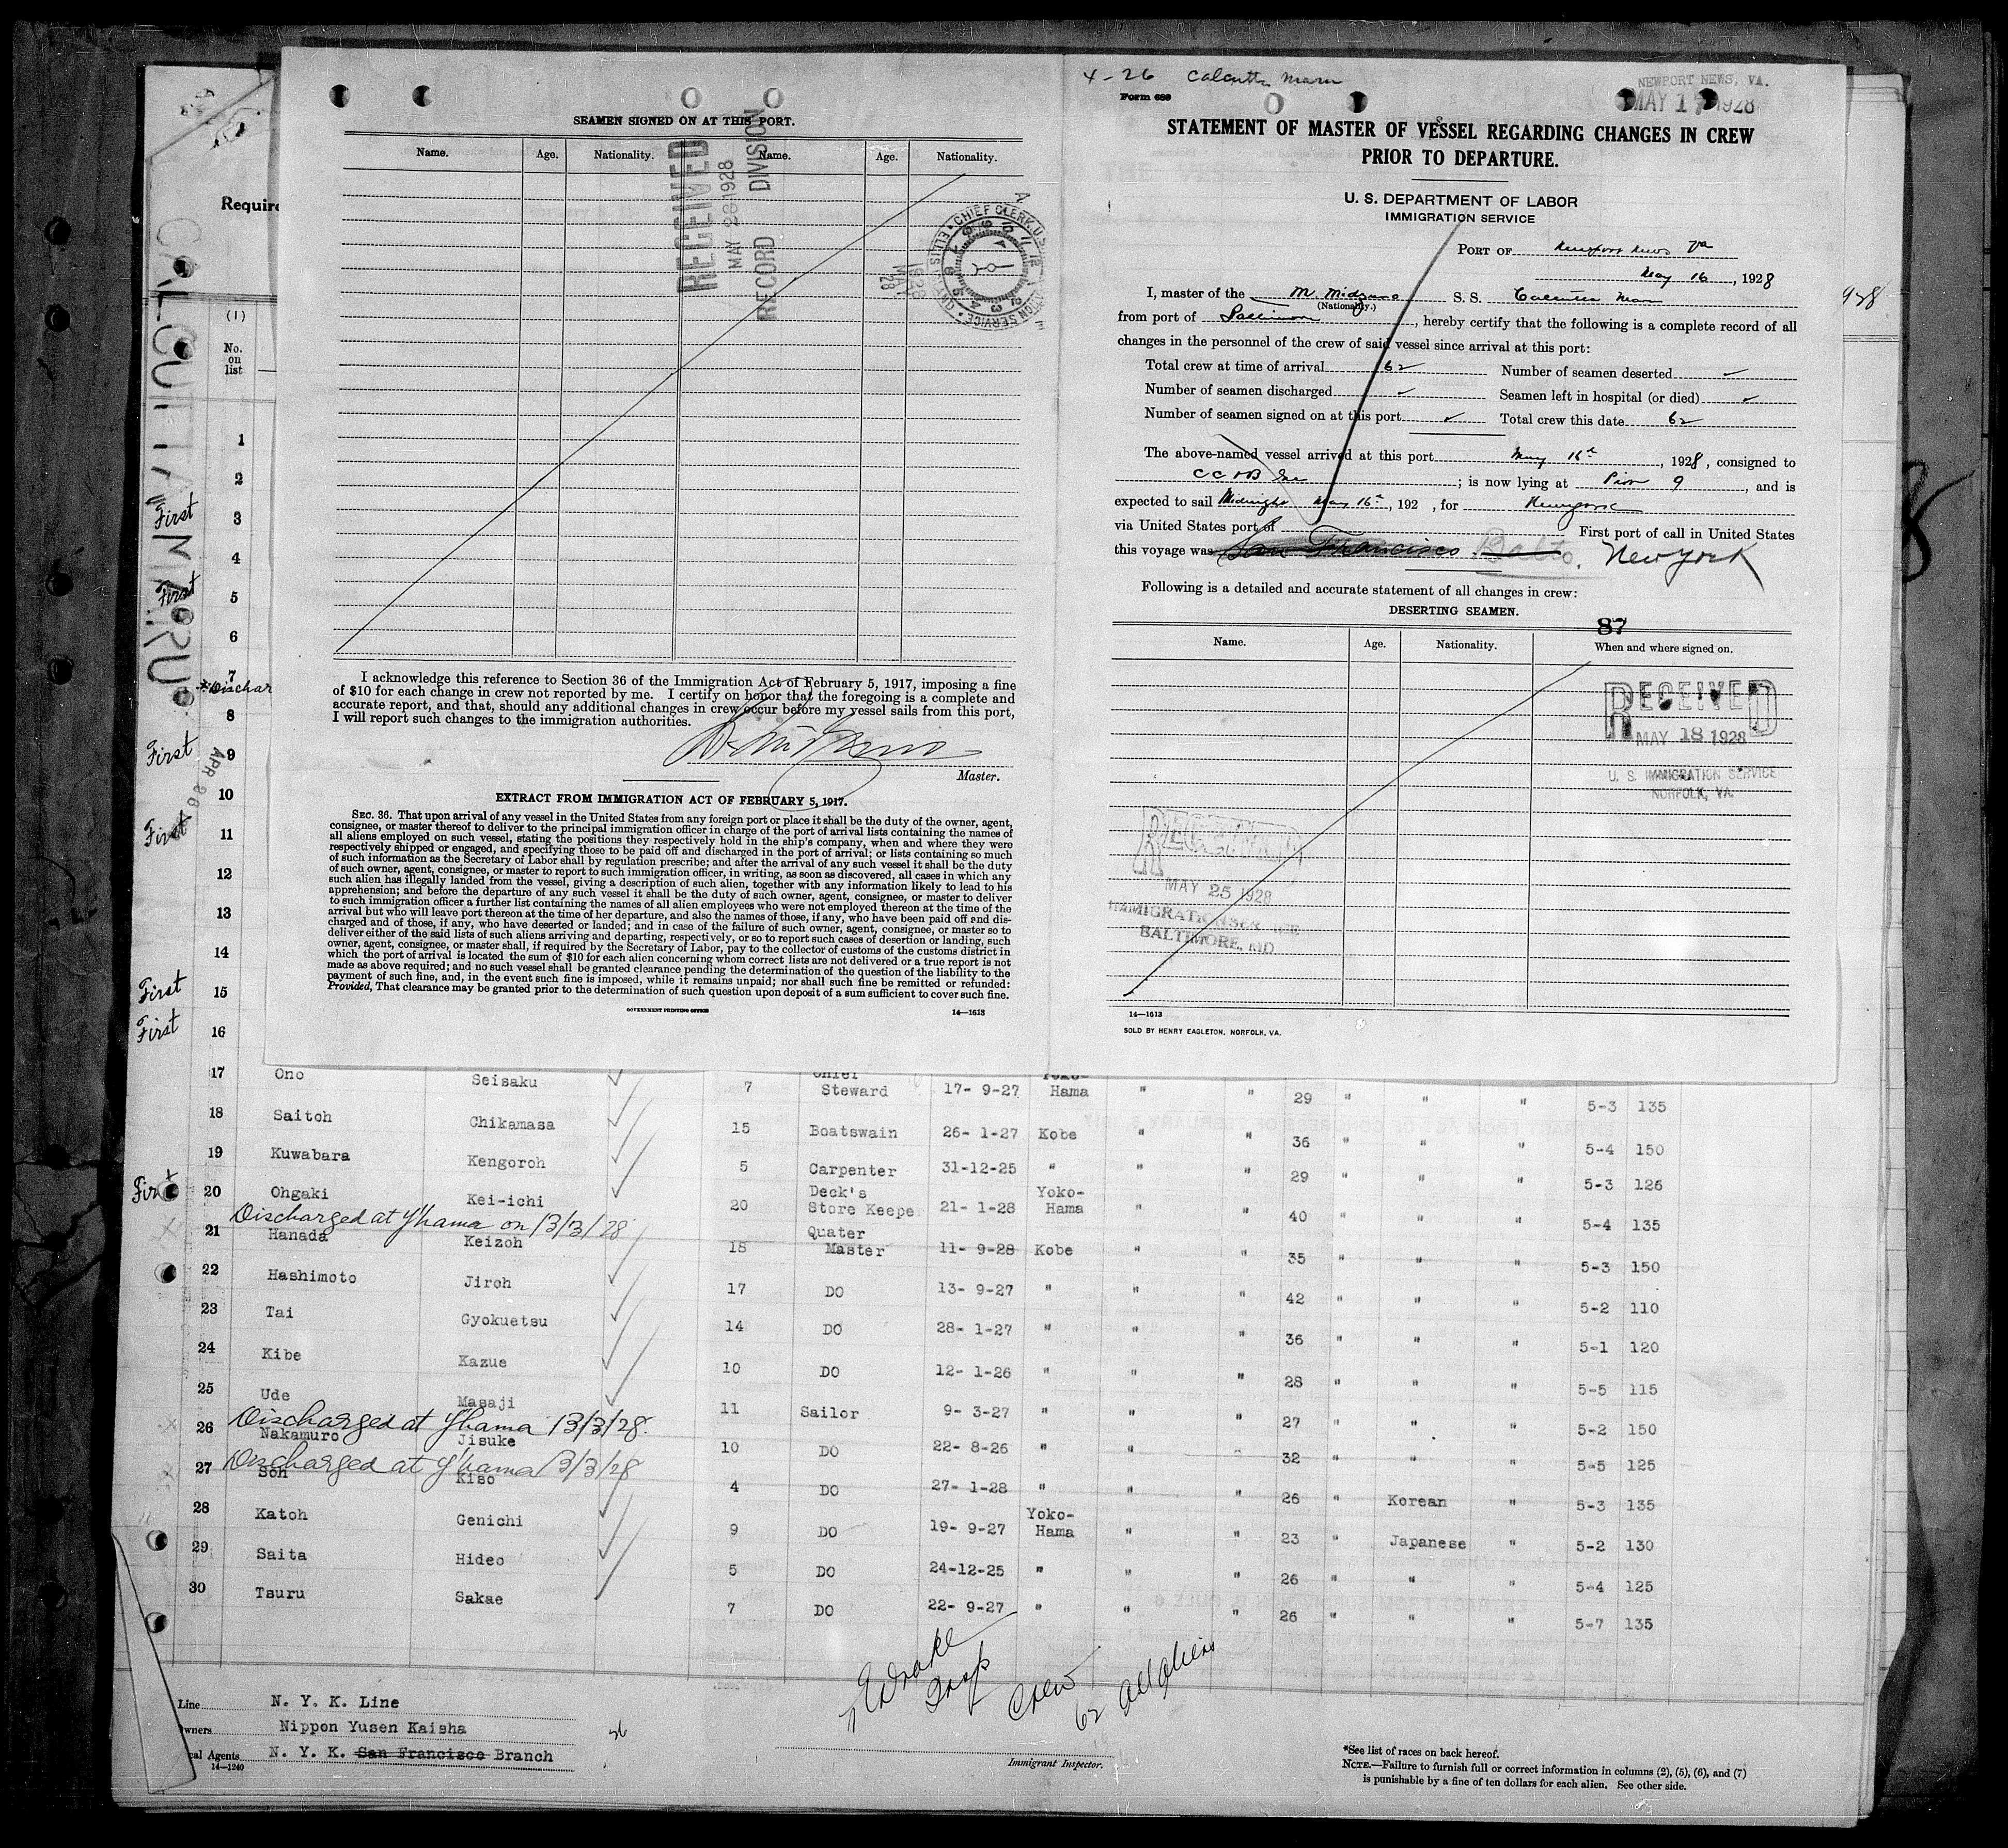 SEAMEN SIGNED ON AT THIS PORT.
Name. Age. Nationality. Name. Age. Nationality.
RECEIVED
MAY 28 1928
RECORD DIVISION
CHIEF CLERK, U.S.
ELLIS
I acknowledge this reference to Section 36 of the Immigration Act of February 5, 1917, imposing a fine
of $10 for each change in crew not reported by me. I certify on honor that the foregoing is a complete and
accurate report, and that, should any additional changes in crew occur before my vessel sails from this port,
I will report such changes to the immigration authorities.
Master.
EXTRACT FROM IMMIGRATION ACT OF FEBRUARY 5, 1917.
SEC. 36. That upon arrival of any vessel in the United States from any foreign port or place it shall be the duty of the owner, agent,
consignee, or master thereof to deliver to the principal immigration officer in charge of the port of arrival lists containing the names of
all aliens employed on such vessel, stating the positions they respectively hold in the ship's company, when and where they were
respectively shipped or engaged, and specifying those to be paid off and discharged in the port of arrival; or lists containing so much
of such information as the Secretary of Labor shall by regulation prescribe; and after the arrival of any such vessel it shall be the duty
of such owner, agent, consignee, or master to report to such immigration officer, in writing, as soon as discovered, all cases in which any
such alien has illegally landed from the vessel, giving a description of such alien, together with any information likely to lead to his
apprehension; and before the departure of any such vessel it shall be the duty of such owner, agent, consignee, or master to deliver
to such immigration officer a further list containing the names of all alien employees who were not employed thereon at the time of the
arrival but who will leave port thereon at the time of her departure, and also the names of those, if any, who have been paid off and dis-
charged and of those, if any, who have deserted or landed; and in case of the failure of such owner, agent, consignee, or master so to
deliver either of the said lists of such aliens arriving and departing, respectively, or so to report such cases of desertion or landing, such
owner, agent, consignee, or master shall, if required by the Secretary of Labor, pay to the collector of customs of the customs district in
which the port of arrival is located the sum of $10 for each alien concerning whom correct lists are not delivered or a true report is not
made as above required; and no such vessel shall be granted clearance pending the determination of the question of the liability to the
payment of such fine, and, in the event such fine is imposed, while it remains unpaid; nor shall such fine be remitted or refunded:
Provided, That clearance may be granted prior to the determination of such question upon deposit of a sum sufficient to cover such fine.
GOVERNMENT PRINTING OFFICE 14—1613
4-26 Calcutta Maru
NEWPORT NEWS, VA.
MAY 17 1928
Form 689
STATEMENT OF MASTER OF VESSEL REGARDING CHANGES IN CREW
PRIOR TO DEPARTURE.
U. S. DEPARTMENT OF LABOR
IMMIGRATION SERVICE
PORT OF Newport News Va
May 16, 1928
I, master of the M. Midzuno S. S. Calcutta Maru
(Nationality.)
from port of Baltimore, hereby certify that the following is a complete record of all
changes in the personnel of the crew of said vessel since arrival at this port:
Total crew at time of arrival 62 Number of seamen deserted ✓
Number of seamen discharged ✓ Seamen left in hospital (or died) ✓
Number of seamen signed on at this port ✓ Total crew this date 62
The above-named vessel arrived at this port May 16th, 1928, consigned to
; is now lying at Pier 9, and is
expected to sail Midnight May 16th, 192 , for Newyork
via United States port of First port of call in United States
this voyage was San Francisco Balto. New York
Following is a detailed and accurate statement of all changes in crew:
DESERTING SEAMEN.
87
Name. Age. Nationality. When and where signed on.
RECEIVED
MAY 18 1928
U. S. IMMIGRATION SERVICE
NORFOLK, VA.
RECEIVED
MAY 25 1928
IMMIGRATION SERVICE
BALTIMORE, MD
14—1613
SOLD BY HENRY EAGLETON, NORFOLK, VA.
CALCUTTA MARU
APR 26
Require
(1)
No.
on
list
1
2
First 3
4
First 5
6
7
Dischar
8
First 9
10
First 11
12
13
14
First 15
First 16
17 Ono Seisaku 7 Chief Steward 17- 9-27 Yoko-Hama " " 29 " " " 5-3 135
18 Saitoh Chikamasa 15 Boatswain 26- 1-27 Kobe " " 36 " " " 5-4 150
19 Kuwabara Kengoroh 5 Carpenter 31-12-25 " " " 29 " " " 5-3 126
First 20 Ohgaki Kei-ichi 20 Deck's Store Keepe 21- 1-28 Yoko-Hama " " 40 " " " 5-4 135
Discharged at Y'hama on 13/3/28
21 Hanada Keizoh 18 Quater Master 11- 9-28 Kobe " " 35 " " " 5-3 150
22 Hashimoto Jiroh 17 DO 13- 9-27 " " " 42 " " " 5-2 110
23 Tai Gyokuetsu 14 DO 28- 1-27 " " " 36 " " " 5-1 120
24 Kibe Kazue 10 DO 12- 1-26 " " " 28 " " " 5-5 115
25 Ude Masaji 11 Sailor 9- 3-27 " " " 27 " " " 5-2 150
Discharged at Y'hama 13/3/28.
26 Nakamuro Jisuke 10 DO 22- 8-26 " " " 32 " " " 5-5 125
Discharged at Y'hama 13/3/28
27 Soh Kiso 4 DO 27- 1-28 " " " 26 " Korean " 5-3 135
28 Katoh Genichi 9 DO 19- 9-27 Yoko-Hama " " 23 " Japanese " 5-2 130
29 Saita Hideo 5 DO 24-12-25 " " " 26 " " " 5-4 125
30 Tsuru Sakae 7 DO 22- 9-27 " " " 26 " " " 5-7 135
Drake
Insp
Crew
62 all aliens
Line N. Y. K. Line
Owners Nippon Yusen Kaisha
26
cal Agents N. Y. K. San Francisco Branch
14—1240
Immigrant Inspector.
*See list of races on back hereof.
NOTE.—Failure to furnish full or correct information in columns (2), (5), (6), and (7)
is punishable by a fine of ten dollars for each alien. See other side.